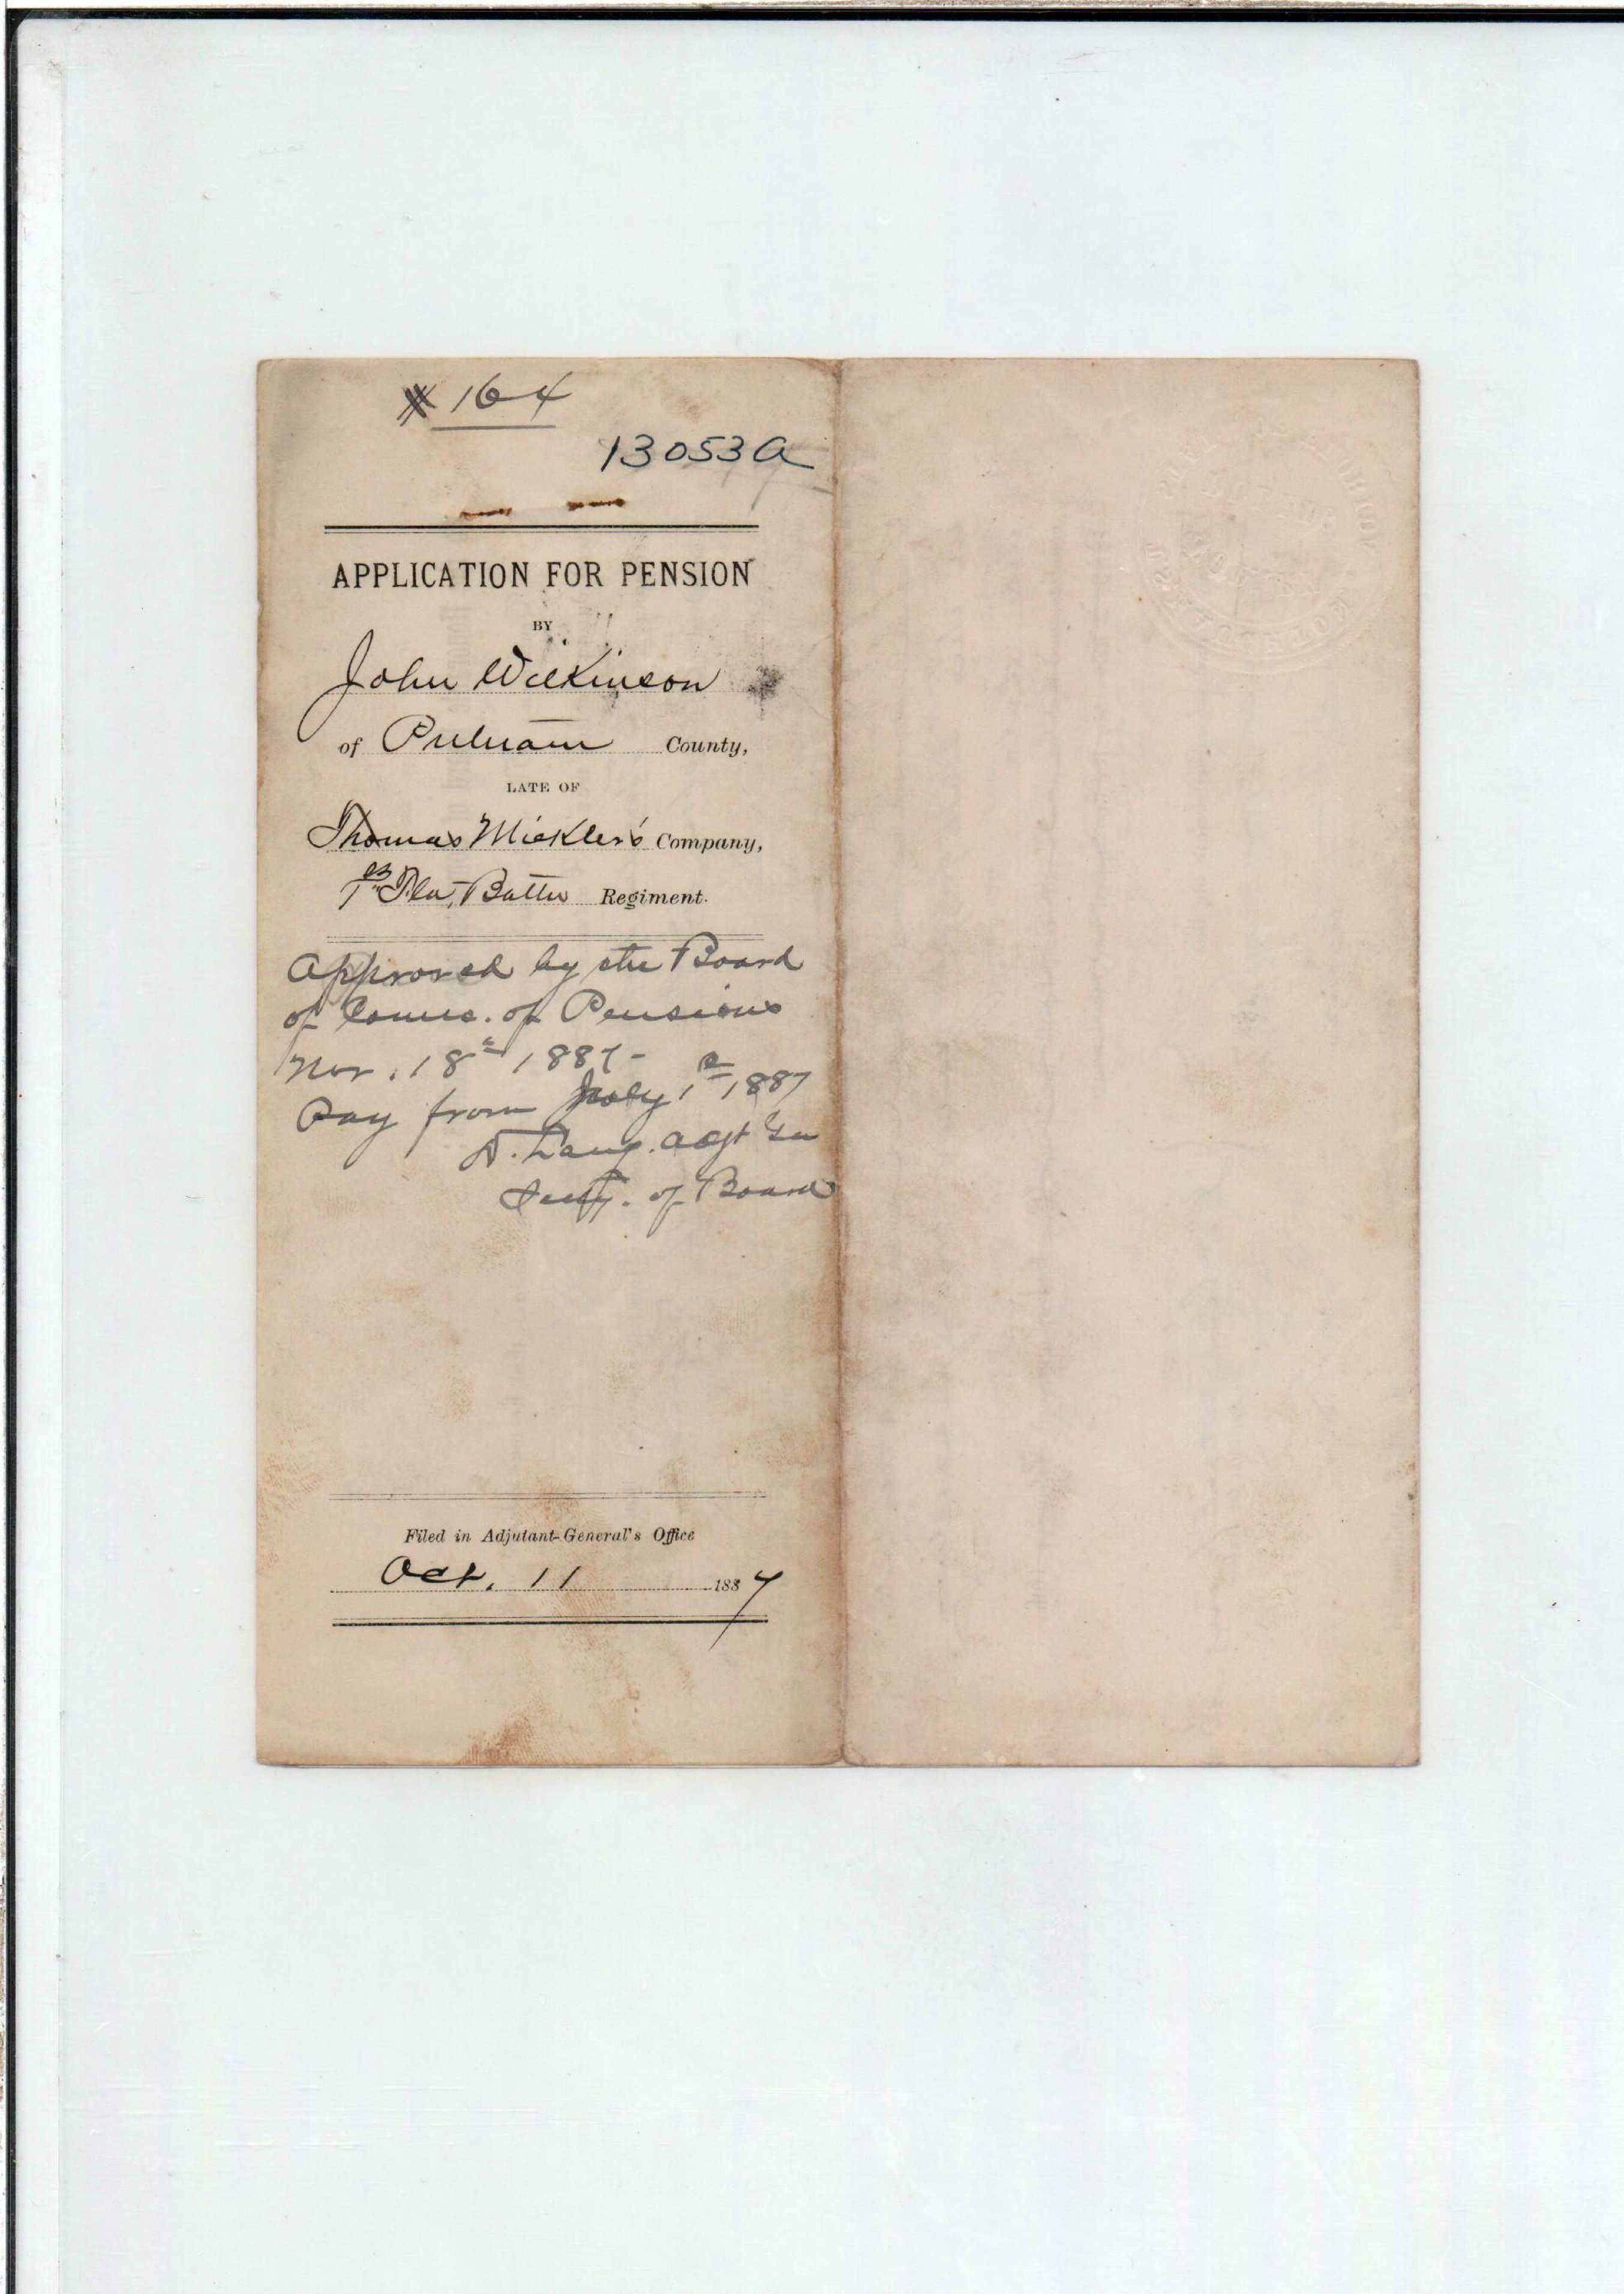 # 164
13053A
APPLICATION FOR PENSION
BY
John Wilkinson
of Putnam County,
LATE OF
Thomas Mickler's Company,
1st Fla. Battn Regiment.
Approved by the Board
of Comrs. of Pensions
Nov. 18th 1887-
Pay from July 1st 1887
D. Lang. Adjt Gen
Secty. of Board
Filed in Adjutant-General's Office
Oct. 11 1887